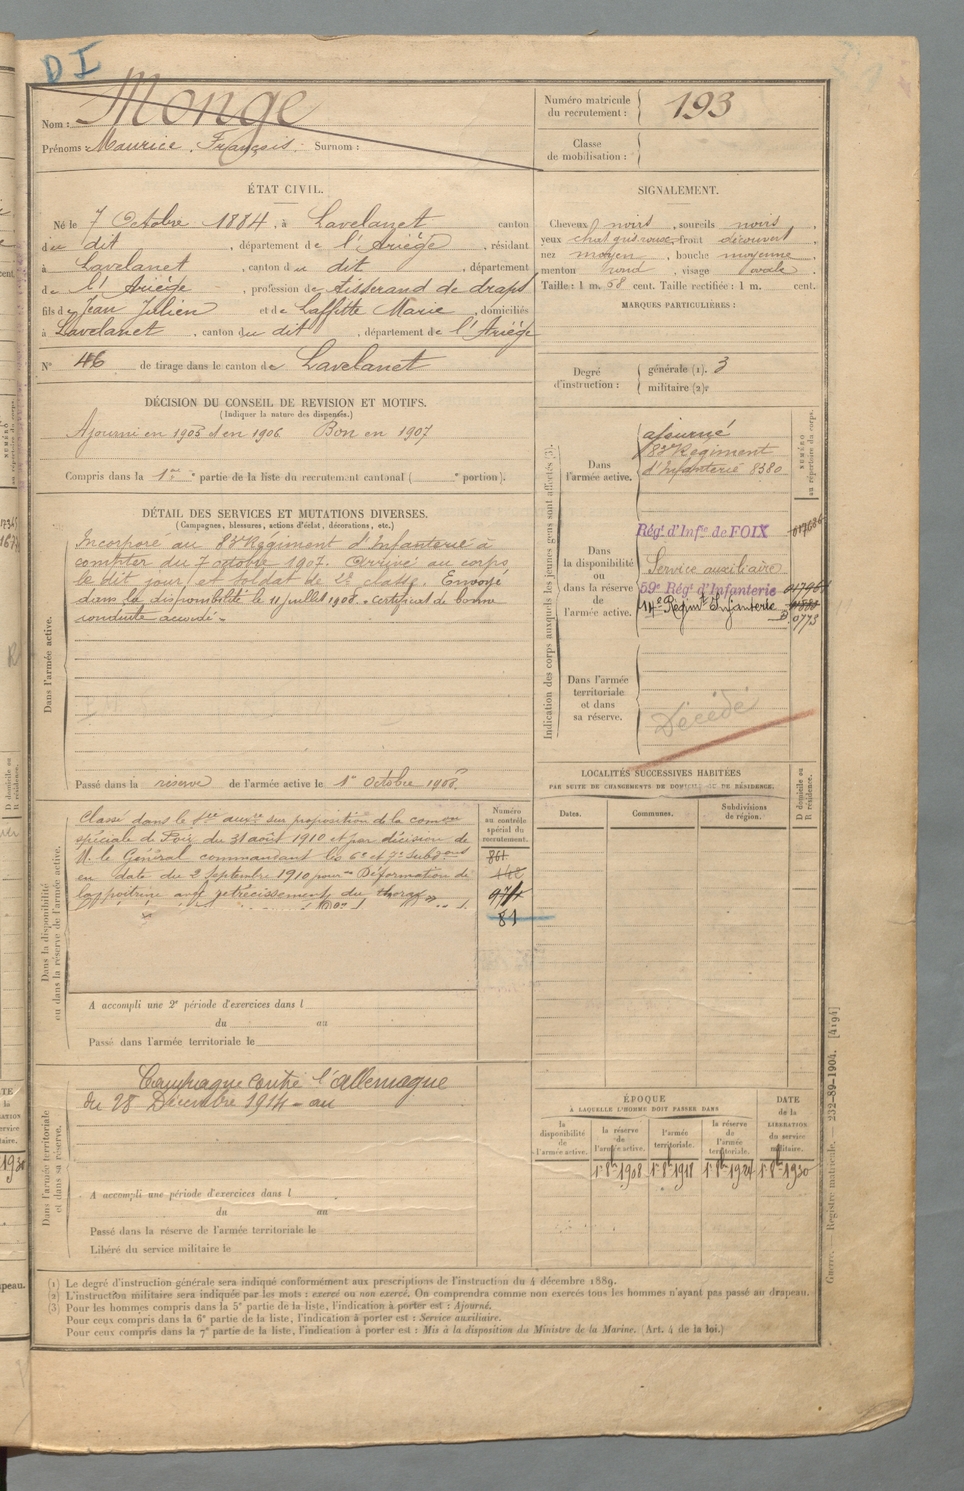 D I
Nom : Monge
Prénoms : Maurice François. Surnom :
Numéro matricule du recrutement : 193
Classe de mobilisation :
ÉTAT CIVIL.
Né le 7 Octobre 1884, à Lavelanet canton
du dit, département de l'Ariège, résidant
à Lavelanet, canton du dit, département
de l'Ariège, profession de tisserand de draps
fils de Jean Julien et de Laffitte Marie, domiciliés
à Lavelanet, canton du dit, département de l'Ariège
N° 46 de tirage dans le canton de Lavelanet
SIGNALEMENT.
Cheveux noirs, sourcils noirs,
yeux front découvert,
nez moyen, bouche moyenne,
menton rond, visage ovale.
Taille : 1 m. 58 cent. Taille rectifiée : 1 m. cent.
MARQUES PARTICULIÈRES :
Degré d'instruction : générale (1). 3
militaire (2).
DÉCISION DU CONSEIL DE REVISION ET MOTIFS.
(Indiquer la nature des dispenses.)
Ajourné en 1905 et en 1906 Bon en 1907
Compris dans la 1re partie de la liste du recrutement cantonal ( portion).
DÉTAIL DES SERVICES ET MUTATIONS DIVERSES.
(Campagnes, blessures, actions d'éclat, décorations, etc.)
Dans l'armée active.
Incorporé au 83e Régiment d'Infanterie à
compter du 7 octobre 1907. Arrivé au corps
le dit jour et soldat de 2e classe. Envoyé
dans la disponibilité le 11 juillet 1908. Certificat de bonne
conduite accordé.
Passé dans la réserve de l'armée active le 1er Octobre 1908
Indication des corps auxquels les jeunes gens sont affectés (3).
NUMÉRO au répertoire du corps.
Dans l'armée active.
ajourné
83e Régiment
d'Infanterie 8380
Dans la disponibilité ou dans la réserve de l'armée active.
Rég.t d'Inf.ie de FOIX
Service auxiliaire
59e Rég.t d'Infanterie
14e Régim.t Infanterie
0773
Dans l'armée territoriale et dans sa réserve.
Décédé
LOCALITÉS SUCCESSIVES HABITÉES
PAR SUITE DE CHANGEMENTS DE DOMICILE OU DE RÉSIDENCE.
Dates. Communes. Subdivisions de région. D domicile ou R résidence.
Dans la disponibilité ou dans la réserve de l'armée active.
Classé dans le sur proposition de la
spéciale de Foix du 31 août 1910 et par décision de
M. le Général commandant les 6e et 7e
en date du 2 Septembre 1910 pour Déformation de
la poitrine avec rétrécissement du thorax
Numéro au contrôle spécial du recrutement.
861
81
A accompli une 2e période d'exercices dans l
du au
Passé dans l'armée territoriale le
Dans l'armée territoriale et dans sa réserve.
Campagne contre l'Allemagne
du 28 Décembre 1914 au
A accompli une période d'exercices dans l
du au
Passé dans la réserve de l'armée territoriale le
Libéré du service militaire le
ÉPOQUE
À LAQUELLE L'HOMME DOIT PASSER DANS
la disponibilité de l'armée active. la réserve de l'armée active. l'armée territoriale. la réserve de l'armée territoriale. DATE de la LIBÉRATION du service militaire.
1er 8bre 1908 1er 8bre 1918 1er 8bre 1924 1er 8bre 1930
(1) Le degré d'instruction générale sera indiqué conformément aux prescriptions de l'instruction du 4 décembre 1889.
(2) L'instruction militaire sera indiquée par les mots : exercé ou non exercé. On comprendra comme non exercés tous les hommes n'ayant pas passé au drapeau.
(3) Pour les hommes compris dans la 5e partie de la liste, l'indication à porter est : Ajourné.
Pour ceux compris dans la 6e partie de la liste, l'indication à porter est : Service auxiliaire.
Pour ceux compris dans la 7e partie de la liste, l'indication à porter est : Mis à la disposition du Ministre de la Marine. (Art. 4 de la loi.)
Guerre. Registre matricule. — 232-89-1904. [4194]